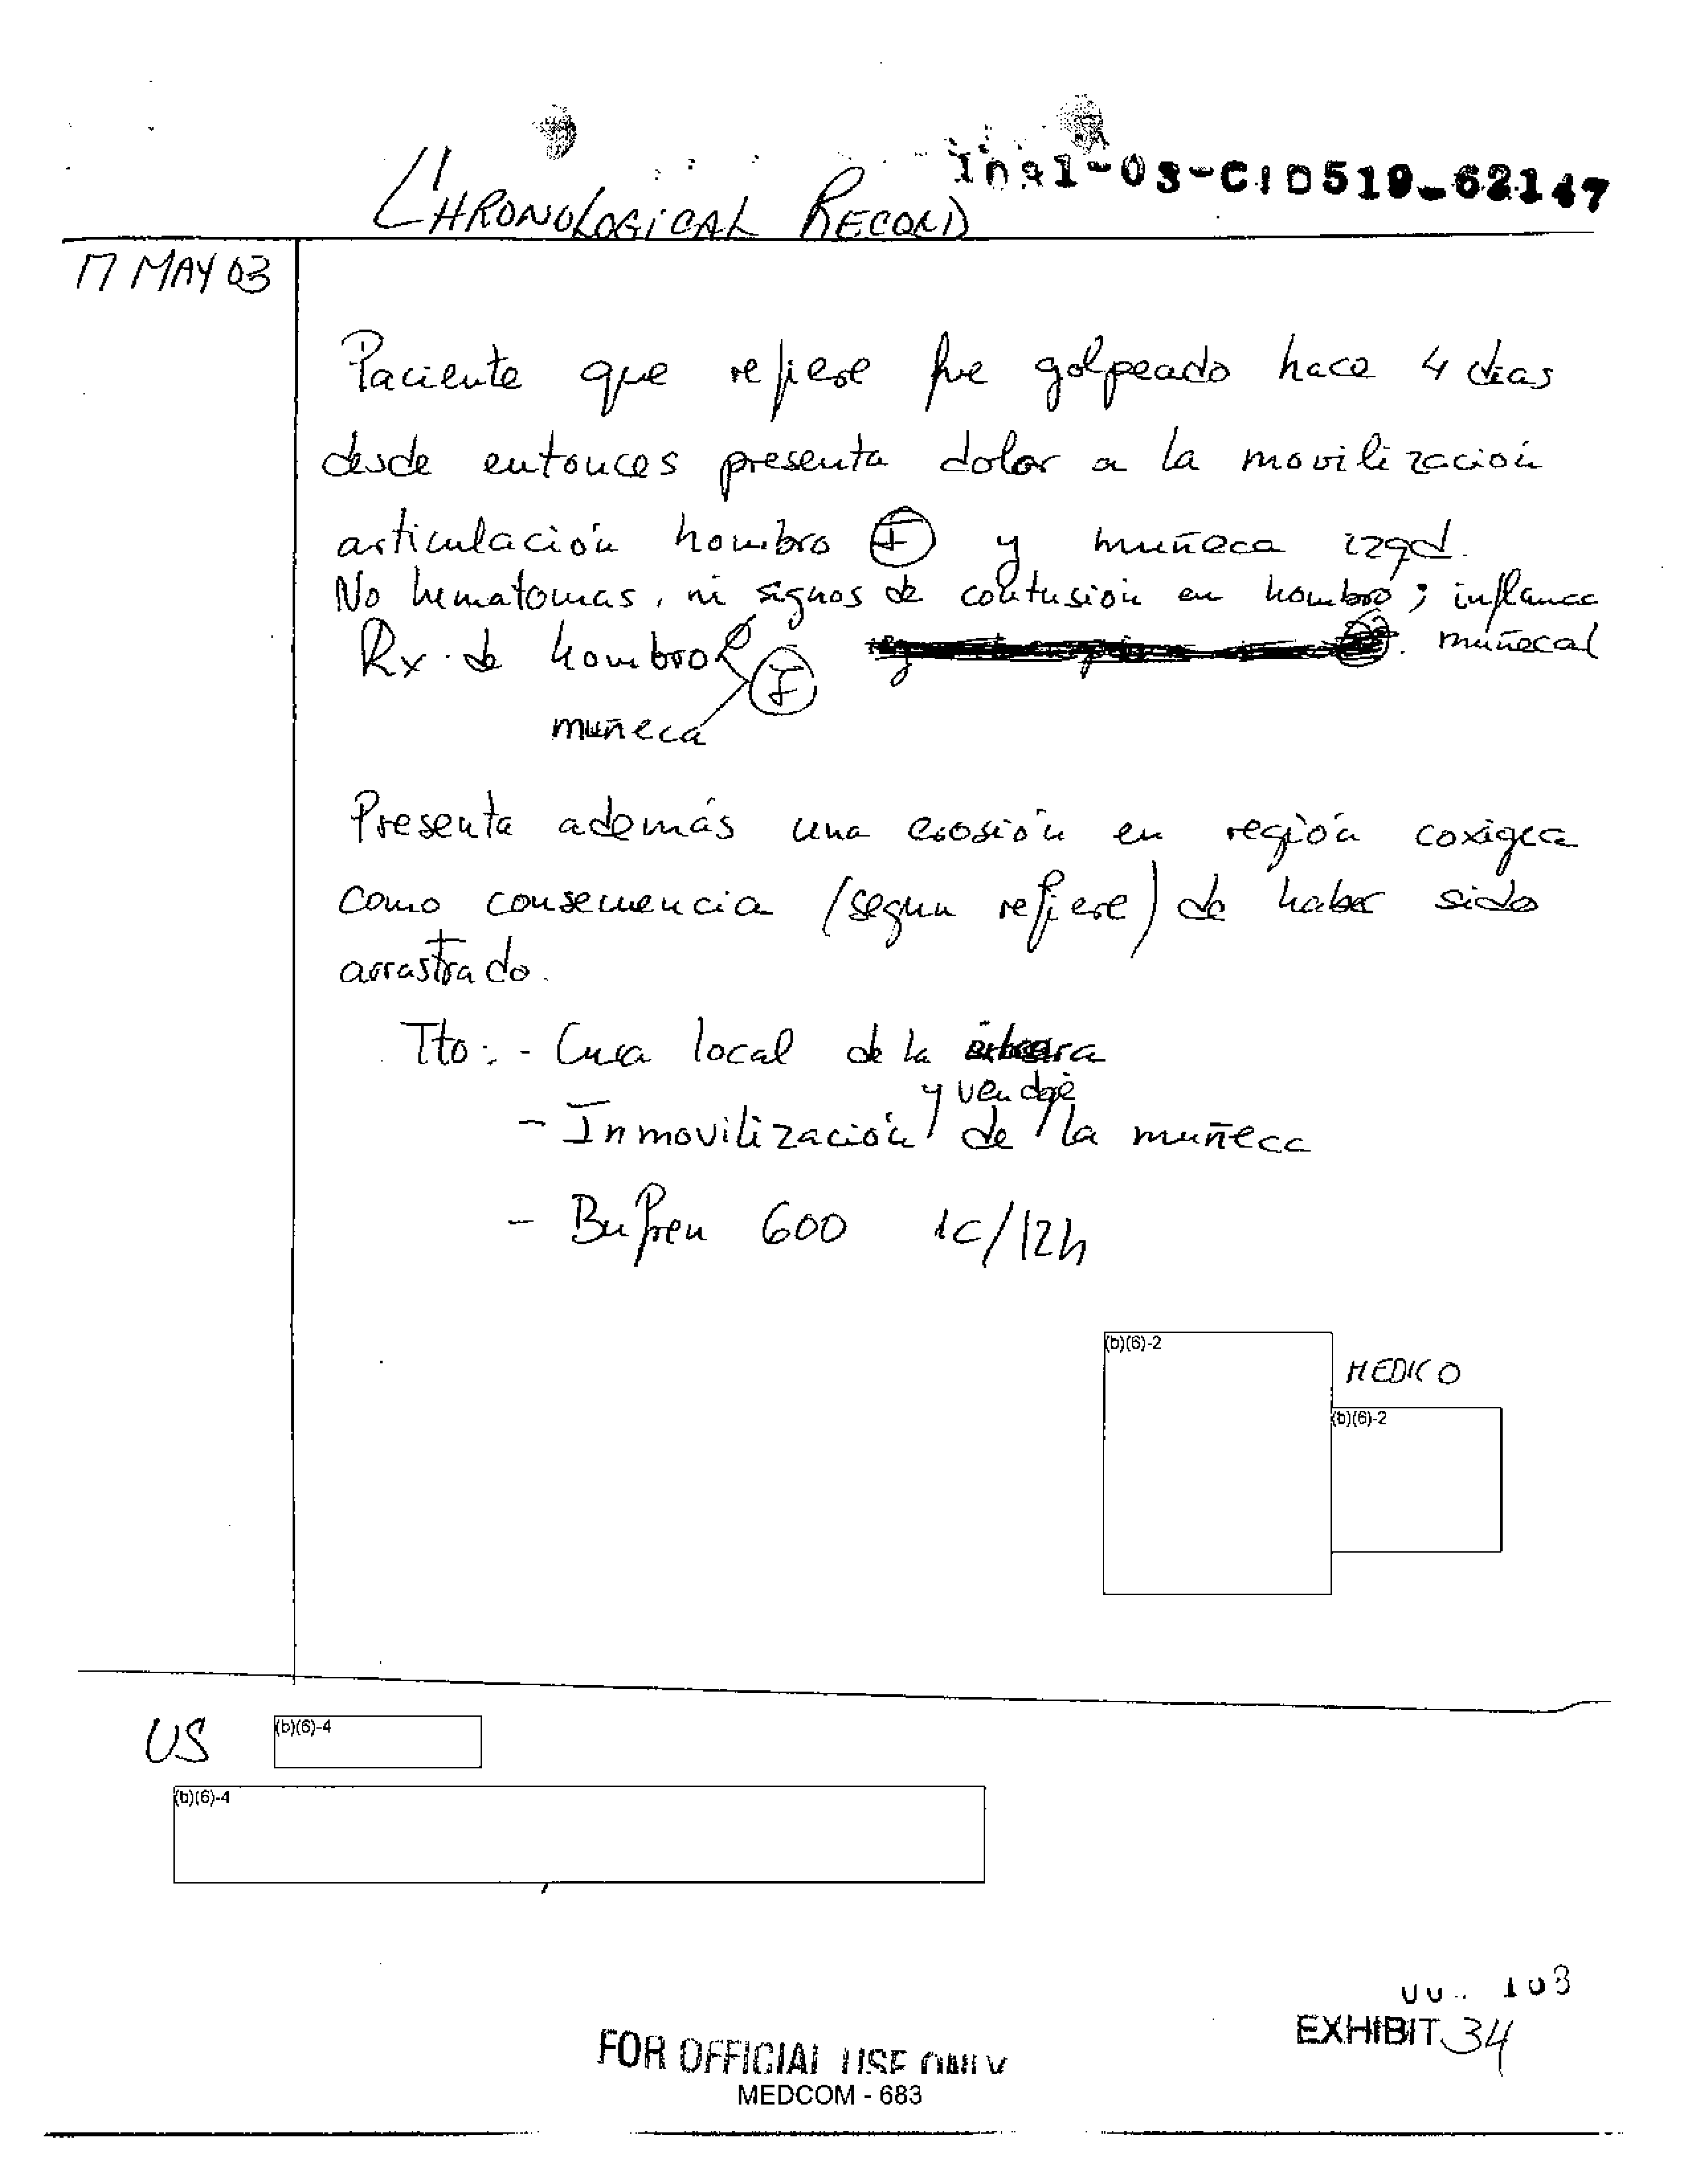 CHRONOLOGICAL RECORD
03-CID519-62147
17 MAY 03
Paciente que refiere fue golpeado hace 4 dias
desde entonces presenta dolor a la movilización
articulación hombro I y muñeca izqd.
No hematomas, ni signos de contusión en hombro; inflamac
muñecal
Rx de hombro I
muñeca
Presenta además una erosión en región coxigea
como consecuencia (segun refiere) de haber sido
arrastrado.
Tto: - Cura local de la
- Inmovilización y vendaje de la muñeca
- Bufren 600 1c/12h
(b)(6)-2
MEDICO
(b)(6)-2
US
(b)(6)-4
(b)(6)-4
103
EXHIBIT 34
FOR OFFICIAL USE ONLY
MEDCOM - 683